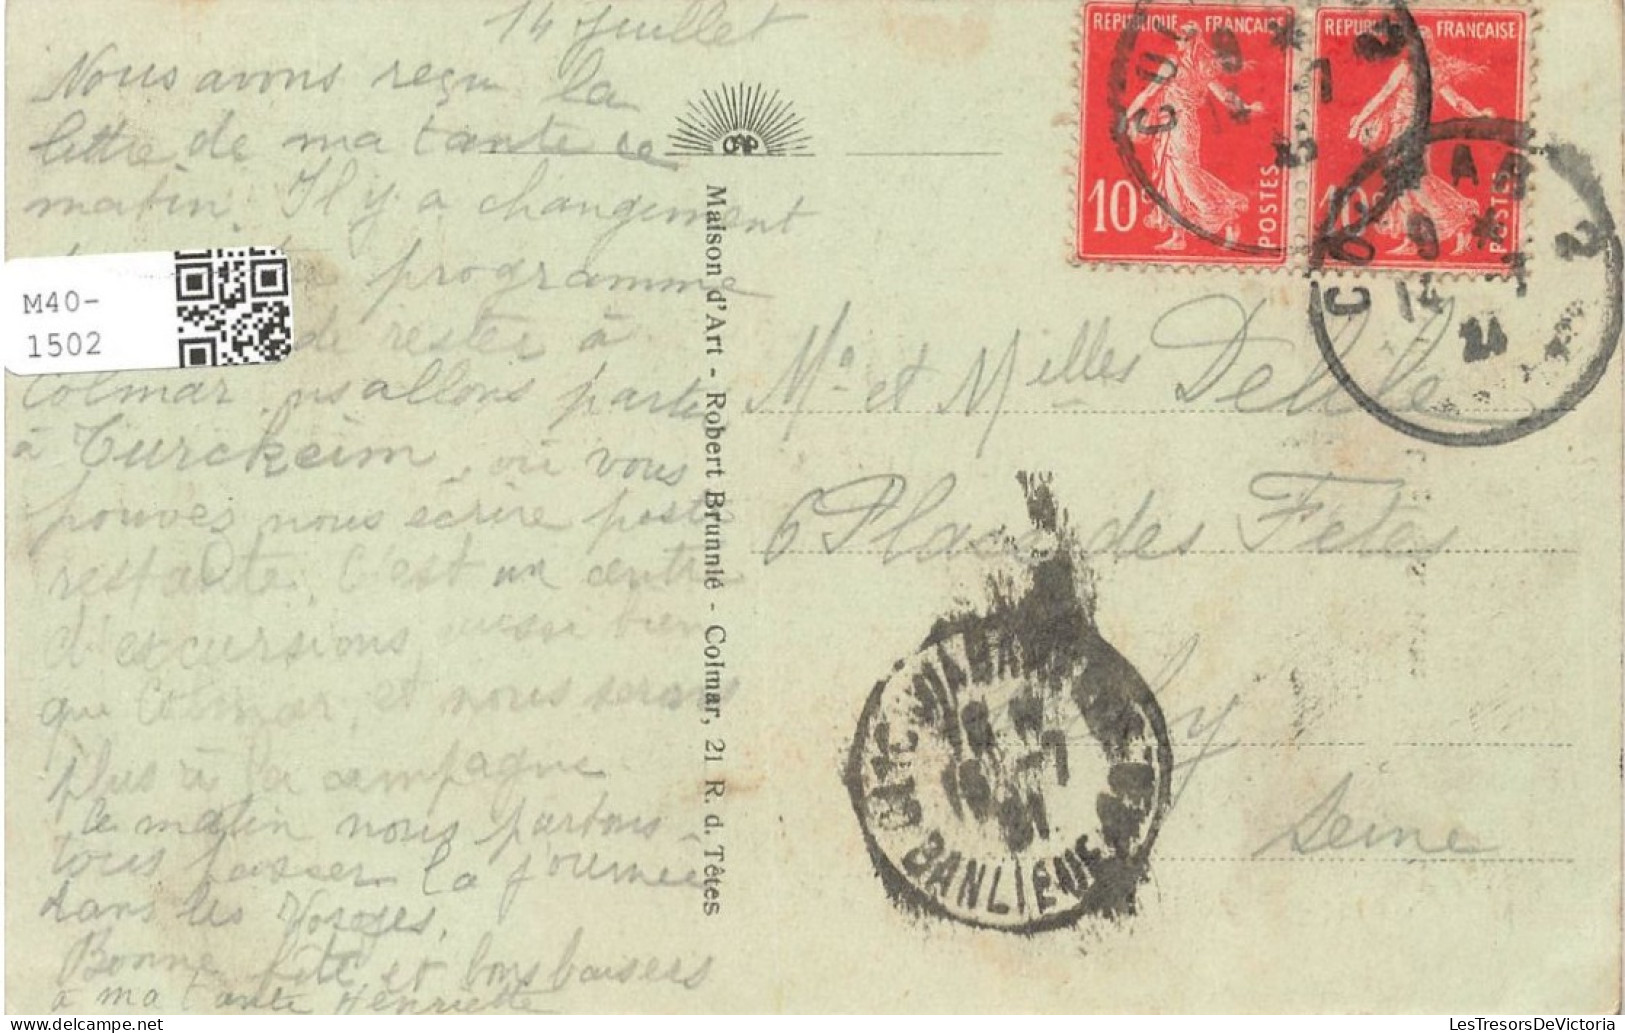 14 Juillet
Nous avons reçu la
lettre de ma tante ce
matin. Il y a changement
programme
de rester à
Colmar, ns allons partir
à Turckeim, où vous
pouvez nous écrire poste
restante. C'est un centre
d'excursions aussi bien
que Colmar, et nous serons
plus à la campagne.
Ce matin nous partons
tous passer la journée
dans les Vosges.
Bonne fête et bons baisers
à ma tante Henriette
M40-
1502
CAP
Maison d'Art - Robert Brunnlé - Colmar, 21 R. d. Têtes
REPUBLIQUE FRANÇAISE
10c
POSTES
REPUBLIQUE FRANÇAISE
10c
POSTES
COLMAR
9 *
14 - 7
21
2
Me et Melles Delile
6 Place des Fetes
Seine
BANLIEUE
LesTresorsDeVictoria